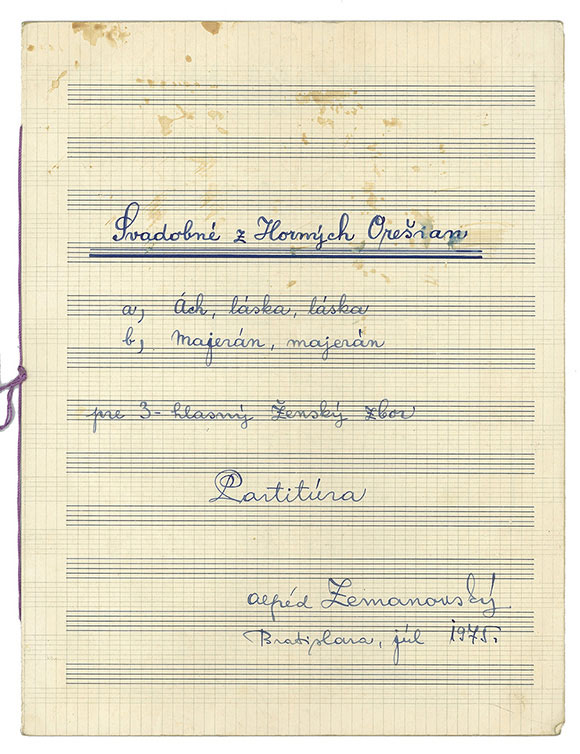 Svadobné z Horných Orešian
a, Ách, láska, láska
b, Majerán, majerán
pre 3-hlasný ženský zbor
Partitúra
Alfréd Zemanovský
Bratislava, júl 1975.